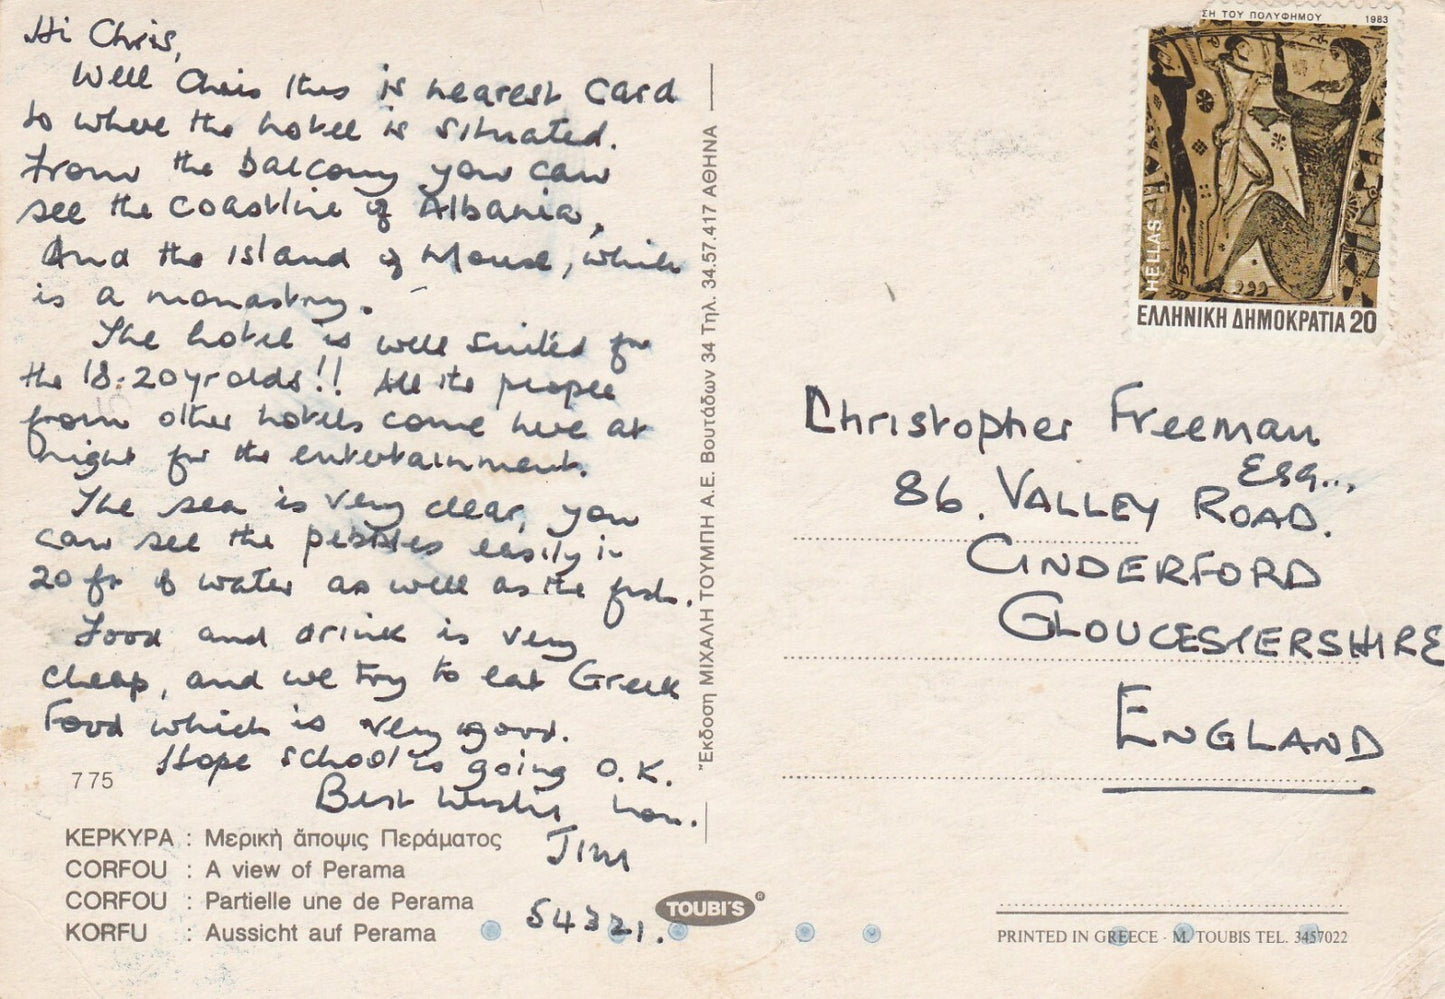 Hi Chris,
Well Chris this is nearest card
to where the hotel is situated.
From the balcony you can
see the coastline of Albania,
And the island of Mouse, which
is a monastry.
The hotel is well suited for
the 18-20 yr olds!! All the people
from other hotels come here at
night for the entertainment.
The sea is very clear, you
can see the pebbles easily in
20 ft of water as well as the fish.
Food and drink is very
cheap, and we try to eat Greek
Food which is very good.
Hope school is going O.K.
Best Wishes,
Jim
54321.
775
ΚΕΡΚΥΡΑ : Μερικὴ ἄποψις Περάματος
CORFOU : A view of Perama
CORFOU : Partielle une de Perama
KORFU : Aussicht auf Perama
Ἔκδοση ΜΙΧΑΛΗ ΤΟΥΜΠΗ Α.Ε. Βουτάδων 34 Τηλ. 34.57.417 ΑΘΗΝΑ
TOUBI'S ®
ΣΗ ΤΟΥ ΠΟΛΥΦΗΜΟΥ 1983
HELLAS
ΕΛΛΗΝΙΚΗ ΔΗΜΟΚΡΑΤΙΑ 20
Christopher Freeman
Esq..,
86. VALLEY ROAD.
CINDERFORD
GLOUCESTERSHIRE
ENGLAND
PRINTED IN GREECE - M. TOUBIS TEL. 3457022